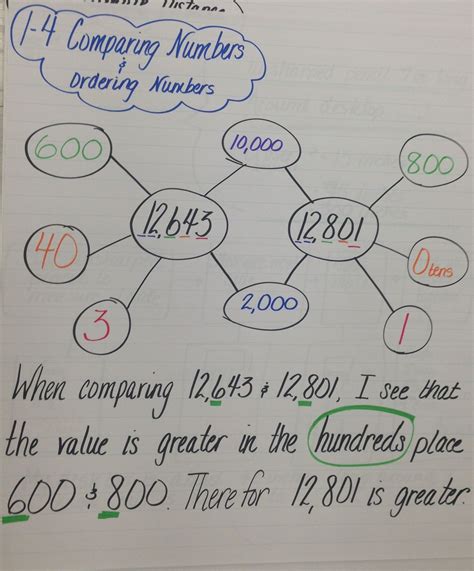 1-4 Comparing Numbers
&
Ordering Numbers
600
10,000
800
12,643
12,801
40
0 tens
3
2,000
1
When comparing 12,643 & 12,801, I see that
the value is greater in the hundreds place
600 & 800. There for 12,801 is greater.